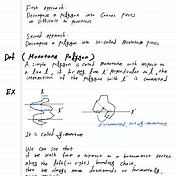 First approach:
Decompose a polygon into Convex pieces
→ Difficult in practice
Second approach:
Decompose a polygon into so-called Monotone pieces
Def (Monotone Polygon)
A simple polygon is called Monotone with respect to
a line l, if for any line l' perpendicular to l, the
intersection of the polygon with l' is connected
EX
l'
l'
It is called y-monotone
We can see that
if we walk from a topmost to a bottommost vertex
along the left/right boundary chain,
then we always move downwards or horizontally,